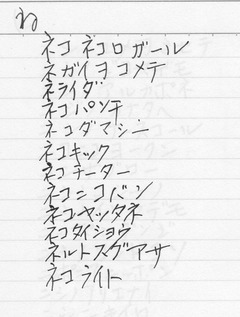 ね
ネコ ネコロガール
ネガイヲコメテ
ネライダ
ネコパンチ
ネコダマシー
ネコキック
ネコチーター
ネコニコバン
ネコヤッタネ
ネコタイショウ
ネルトスグアサ
ネコライト